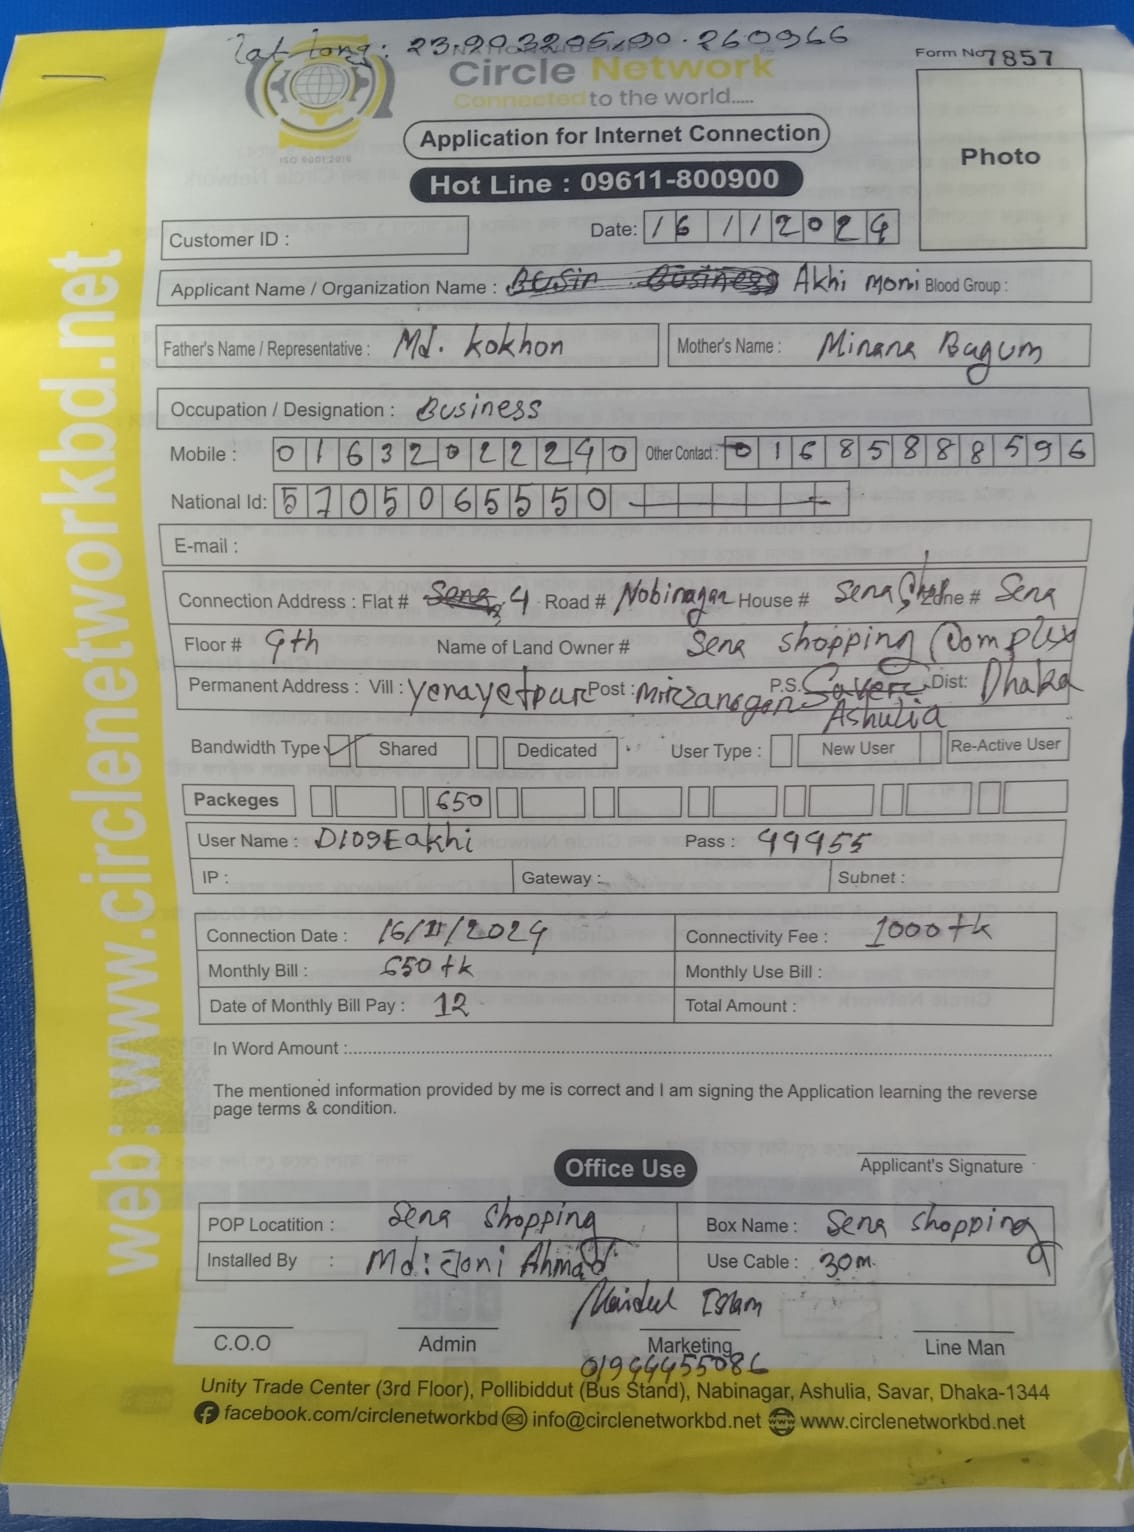 lat long: 23.903205,90.260966
Form No 7857
Circle Network
Connected to the world.....
ISO 9001:2015
Application for Internet Connection
Photo
Hot Line : 09611-800900
Customer ID :
Date: 16 11 2024
Applicant Name / Organization Name : Akhi moni Blood Group :
Father's Name / Representative : Md. Kokhon
Mother's Name : Minara Bagum
Occupation / Designation : Business
Mobile : 01632022240 Other Contact : 01685888596
National Id: 5705065550
E-mail :
Connection Address : Flat # 4 Road # Nobinagar House # Sena Shop Zone # Sena
Floor # 4th Name of Land Owner # Sena shopping Complex
Permanent Address : Vill : yenayetpur Post : mirzanagar P.S. Ashulia Dist: Dhaka
Bandwidth Type Shared Dedicated User Type : New User Re-Active User
Packeges 650
User Name : D109Eakhi Pass : 99955
IP : Gateway : Subnet :
Connection Date : 16/11/2024 Connectivity Fee : 1000tk
Monthly Bill : 650 tk Monthly Use Bill :
Date of Monthly Bill Pay : 12 Total Amount :
In Word Amount :
The mentioned information provided by me is correct and I am signing the Application learning the reverse
page terms & condition.
Applicant's Signature
Office Use
POP Locatition : Sena shopping Box Name : Sena shopping
Installed By : Md: Joni Ahmad Use Cable : 30m.
Islam
C.O.O Admin Marketing Line Man
01944455086
Unity Trade Center (3rd Floor), Pollibiddut (Bus Stand), Nabinagar, Ashulia, Savar, Dhaka-1344
facebook.com/circlenetworkbd info@circlenetworkbd.net www.circlenetworkbd.net
web: www.circlenetworkbd.net